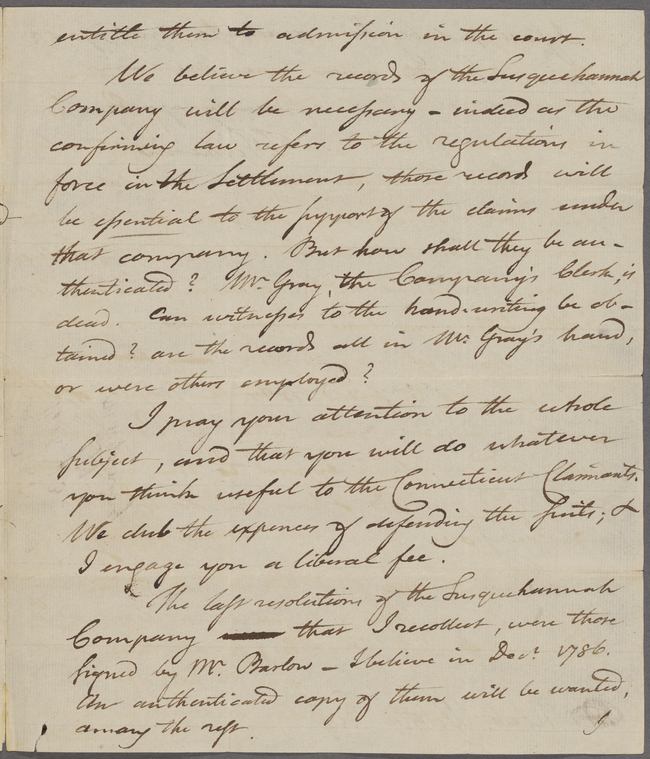 entitle them to admission in the court.
We believe the records of the Susquehannah
Company will be necessary - indeed as the
confirming law refers to the regulations in
force in the Settlement, those records will
be essential to the support of the claims under
that company. But how shall they be au-
thenticated? Mr. Gray, the Company's Clerk, is
dead. Can witnesses to the hand-writing be ob-
tained? are the records all in Mr. Gray's hand,
or were others employed?
I pray your attention to the whole
subject, and that you will do whatever
you think useful to the Connecticut Claimants.
We club the expences of defending the suits; &
I engage you a liberal fee.
The last resolutions of the Susquehannah
Company that I recollect, were those
signed by Mr. Barlow - I believe in Decr. 1786.
An authenticated copy of them will be wanted,
among the rest.